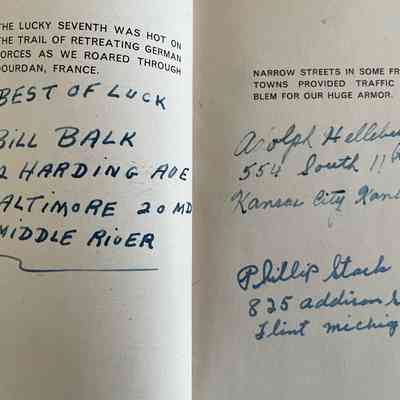 THE LUCKY SEVENTH WAS HOT ON
THE TRAIL OF RETREATING GERMAN
FORCES AS WE ROARED THROUGH
DOURDAN, FRANCE.
BEST OF LUCK
BILL BALK
2 HARDING AVE
BALTIMORE 20 MD
MIDDLE RIVER
NARROW STREETS IN SOME FR
TOWNS PROVIDED TRAFFIC
BLEM FOR OUR HUGE ARMOR.
Adolph
554 South 11th
Kansas City Kans
Phillip Stack
825 Addison S
Flint Michig